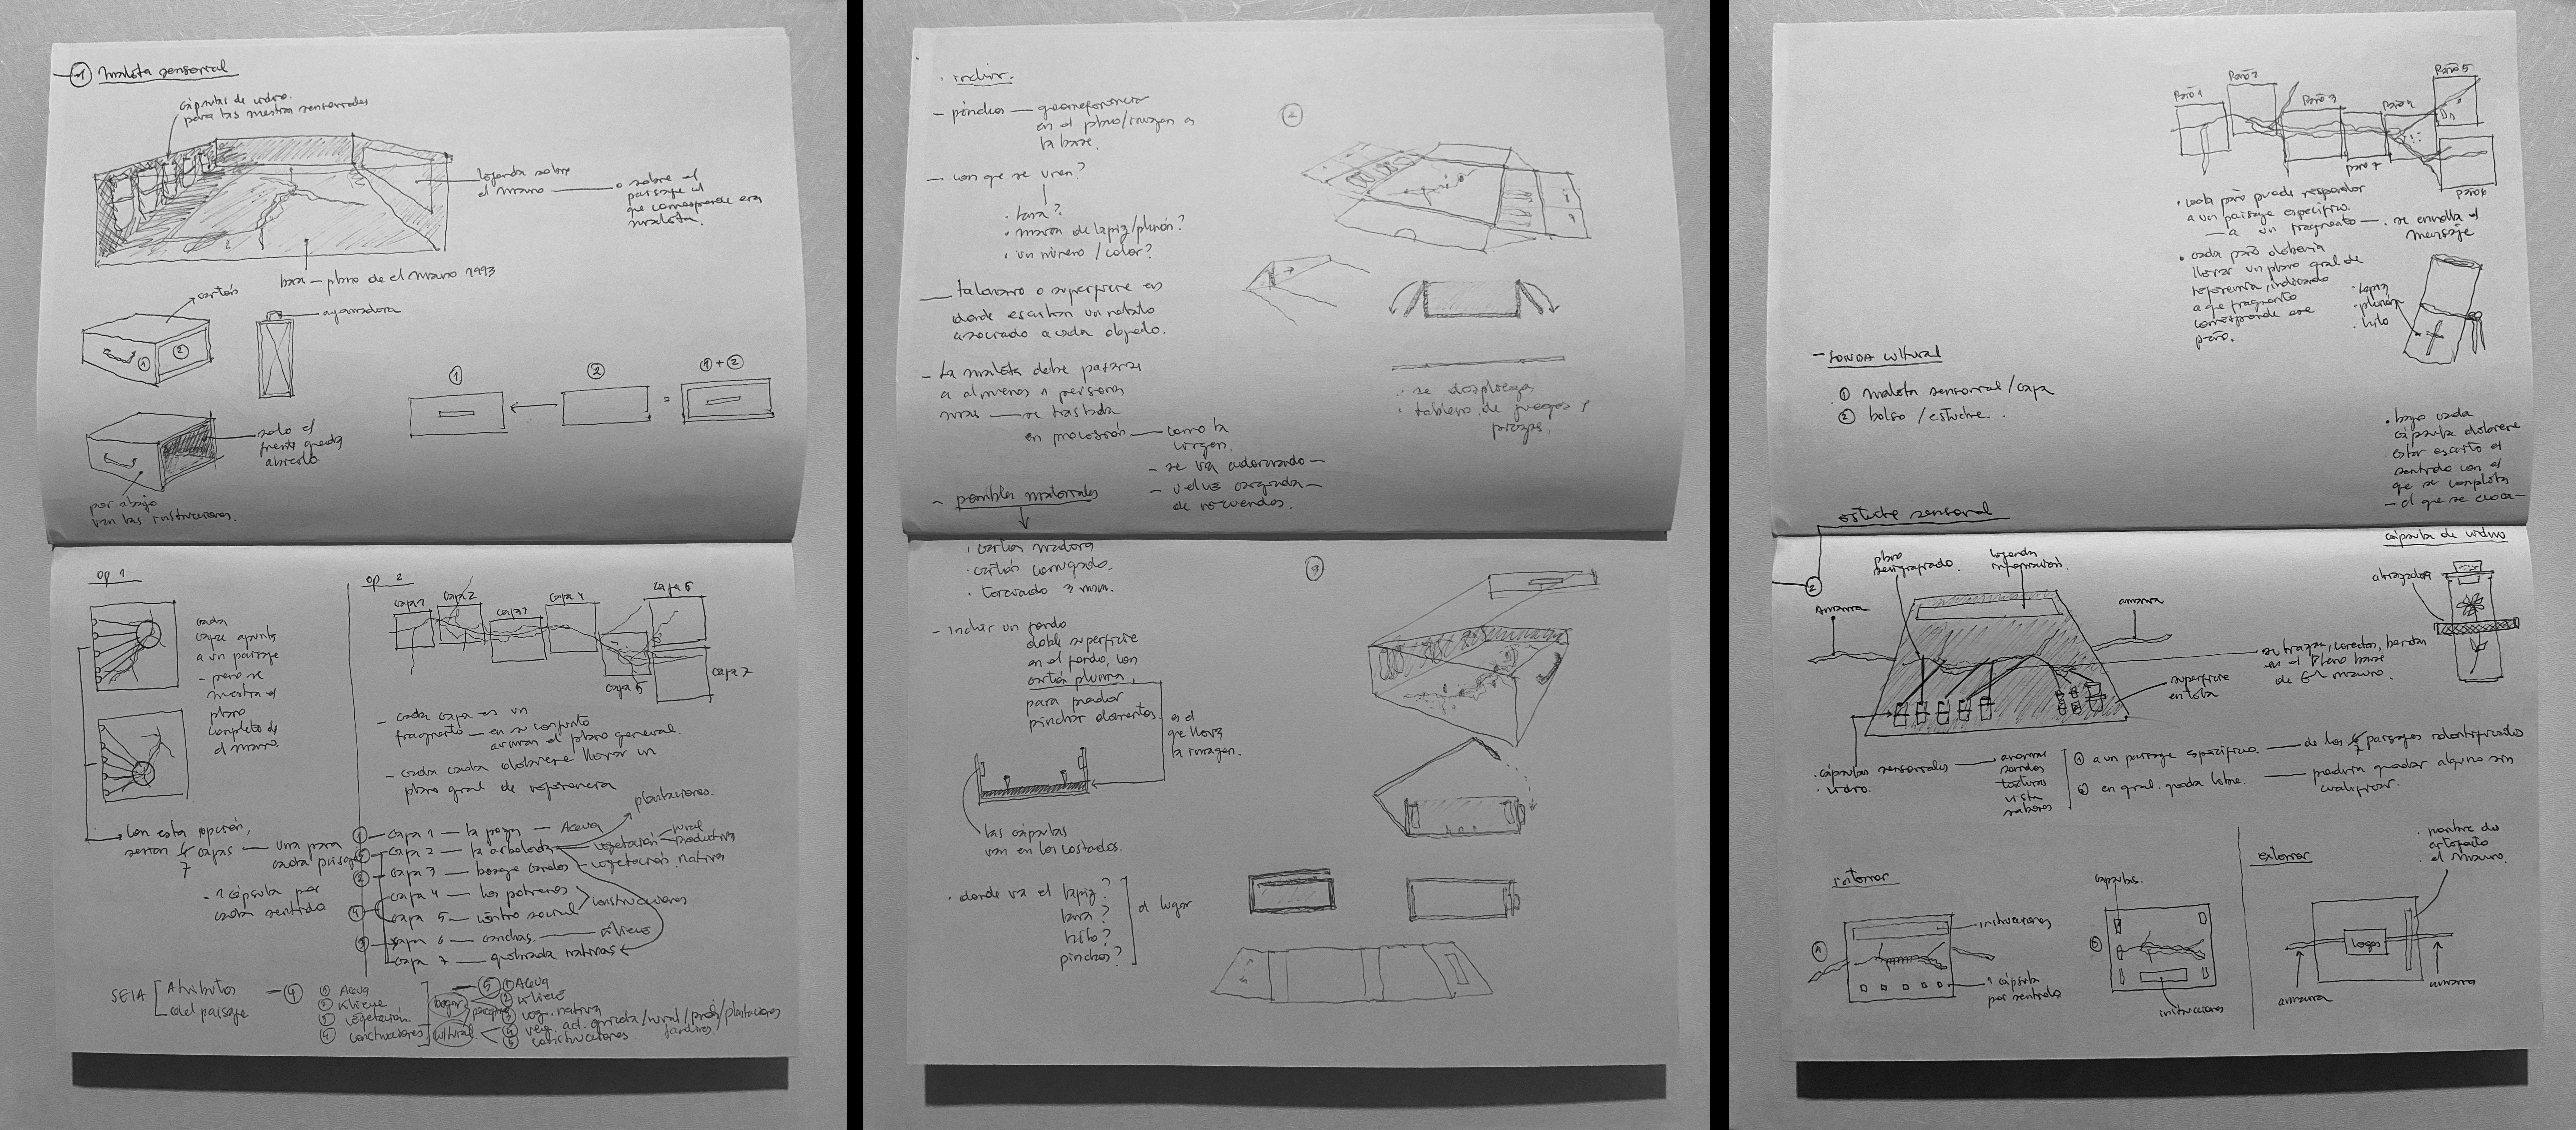 ① maleta sensorial
cápsulas de vidrio.
para las muestras sensoriales
leyenda sobre
el Mauro — o sobre el
paisaje al
que corresponde esa
maleta.
base — plano de el Mauro 1993
cartón
① ②
agarradera
① ② ① + ②
solo el
frente queda
abierto
por abajo
van las instrucciones.
op 1
cada
capa apunta
a un paisaje
- pero se
muestra el
plano
completo de
el Mauro.
con esta opción,
serían
7 capas — una para
cada paisaje
- 1 cápsula por
cada sentido
op 2
capa 1
capa 2
capa 3
capa 4
capa 5
capa 6
capa 7
- cada capa es un
fragmento — en su conjunto
arman el plano general.
- cada capa debiese llevar un
plano gral de referencia
plantaciones.
capa 1 — la poza — Agua
capa 2 — la arboleda — vegetación rural
productiva
capa 3 — bosque canelos — vegetación nativa
capa 4 — los potreros
capa 5 — centro social construcciones
capa 6 — canchas — relieve
capa 7 — quebrada nativas
SEIA Atributos
del paisaje
④ ① Agua
② relieve
③ vegetación
④ construcciones
cultural
⑤ ① Agua
② relieve
③ veg. nativa
④ veg. act. agrícola/rural/prod/plantaciones
jardines
⑤ construcciones
· incluir.
- pinchos — georeferencia
en el plano/imagen de
la base.
- con que se unen?
· lana?
· marca de lapiz/plumón?
· un número / color?
— talonario o superficie en
donde escriban un relato
asociado a cada objeto.
- la maleta debe pasarse
a al menos 1 persona
mas — se traslada
en procesión — como la
virgen.
- se va adornando -
- vuelve cargada -
de recuerdos.
- posibles materiales
②
· se despliega
· tablero de juegos y
piezas.
· cartón madera
· cartón corrugado.
· terciado 3 mm.
- Incluir un fondo
doble superficie
en el fondo, con
cartón pluma,
para poder
pinchar elementos.
es el
que lleva
la imagen.
las cápsulas
van en los costados.
· donde va el lapiz?
lana?
hilo?
pinchos?
el lugar
③
Paño 1
Paño 2
Paño 3
Paño 4
Paño 5
Paño 6
Paño 7
· cada paño puede responder
a un paisaje específico.
— a un fragmento — · se enrolla el
mensaje
· cada paño debería
llevar un plano gral de
referencia, indicando
a que fragmento
corresponde ese
paño.
· lapiz
· plumón
· hilo
- SONDA cultural
① maleta sensorial/capa
② bolso / estuche.
· bajo cada
cápsula debiese
estar escrito el
sentido con el
que se completa
- el que se evoca -
estuche sensorial
②
plano
serigrafiado.
leyenda
información.
Amarra
amarra
cápsula de vidrio
abrazadera
se trazan, conectan, bordan
en el Plano base
de El Mauro.
superficie
en tela
· cápsulas sensoriales — aromas
· vidrio. sonidos
texturas
vista
sabores
① a un paisaje específico. — de los 7 paisajes identificados
② en gral. queda libre. — podría quedar alguno sin
cualificar.
interior
①
instrucciones
1 cápsula
por sentido
cápsulas.
②
instrucciones
exterior
· nombre de
artefacto
· el Mauro.
logos
amarra
amarra